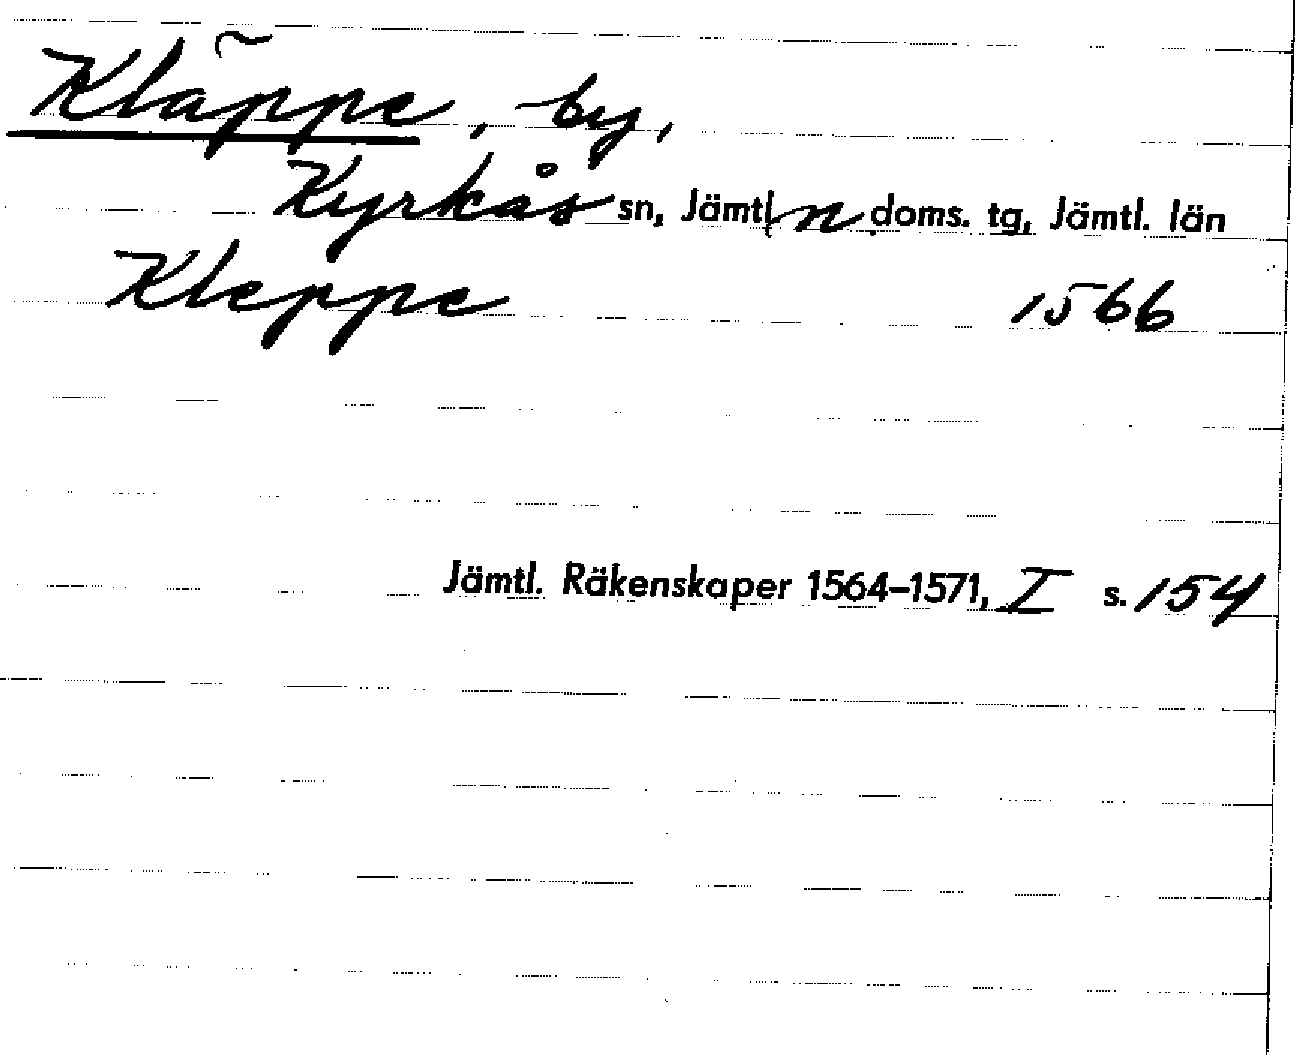 Kläppe, by,
Kyrkås sn, Jämtl n doms. tg, Jämtl. län
Kleppe 1566
Jämtl. Räkenskaper 1564–1571, I s. 154